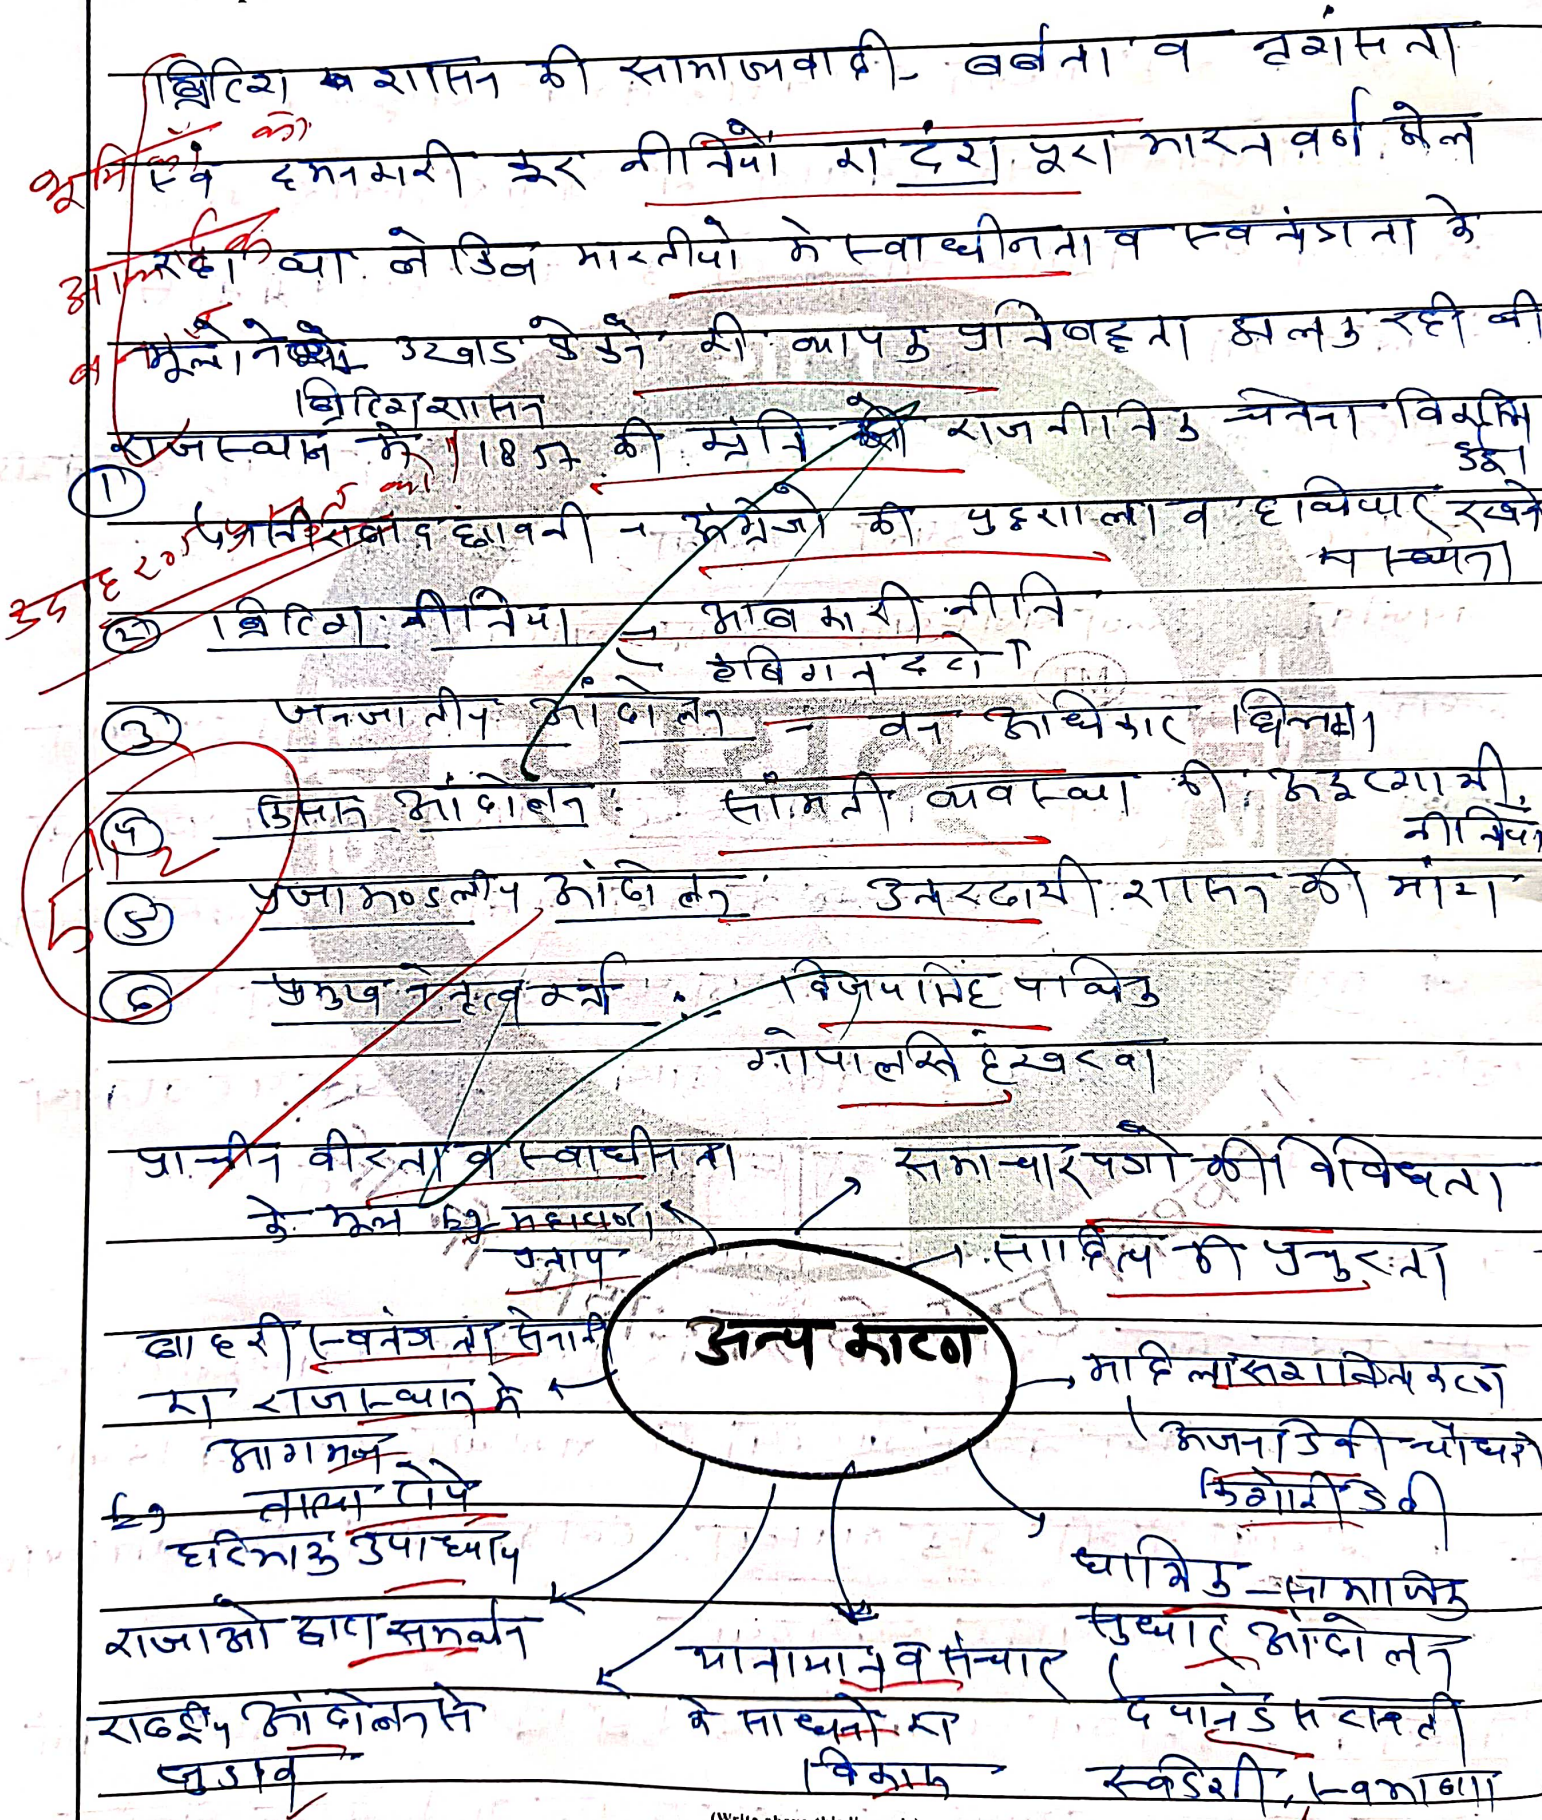 ब्रिटिश शासन की साम्राज्यवादी बर्बता व नृशंसता
एवं दमनकारी क्रूर नीतियों का दंश पूरा भारत वर्ष झेल
भूमिका को
रहा था लेकिन भारतीयों के स्वाधीनता व स्वतंत्रता के
मूल्यों ने उखाड़ फेंकने की व्यापक प्रतिबद्धता झलक रही थी
ब्रिटिश शासन
राजस्थान में 1857 की क्रांति से राजनीतिक चेतना विकसित
हुई।
① छावनी - अंग्रेजों की घुड़शाला व हथियार रखने
का स्थान
② ब्रिटिश नीतियां → आबकारी नीति
③ जनजातीय आंदोलन - वन अधिकार छिनना
④ किसान आंदोलन : सामंती व्यवस्था की
नीतियां
⑤ प्रजामण्डलीय आंदोलन उत्तरदायी शासन की मांग
⑥ प्रमुख नेतृत्वकर्ता : विजयसिंह पथिक
गोपालसिंह खरवा
प्राचीन वीरता व स्वाधीनता
के मूल्य Eg महाराणा
प्रताप
समाचार पत्रों की विविधता
साहित्य की प्रचुरता
अन्य कारण
बाहरी स्वतंत्रता सेनानी
का राजस्थान में
आगमन
Eg तात्या टोपे
हरिभाऊ उपाध्याय
महिला सशक्तिकरण
अंजना देवी चौधरी
किशोरी देवी
धार्मिक-सामाजिक
सुधार आंदोलन
दयानंद सरस्वती
स्वदेशी, स्वभाषा
राजाओं द्वारा समर्थन
यातायात व संचार
के साधनों का
विकास
राष्ट्रीय आंदोलन से
जुड़ाव